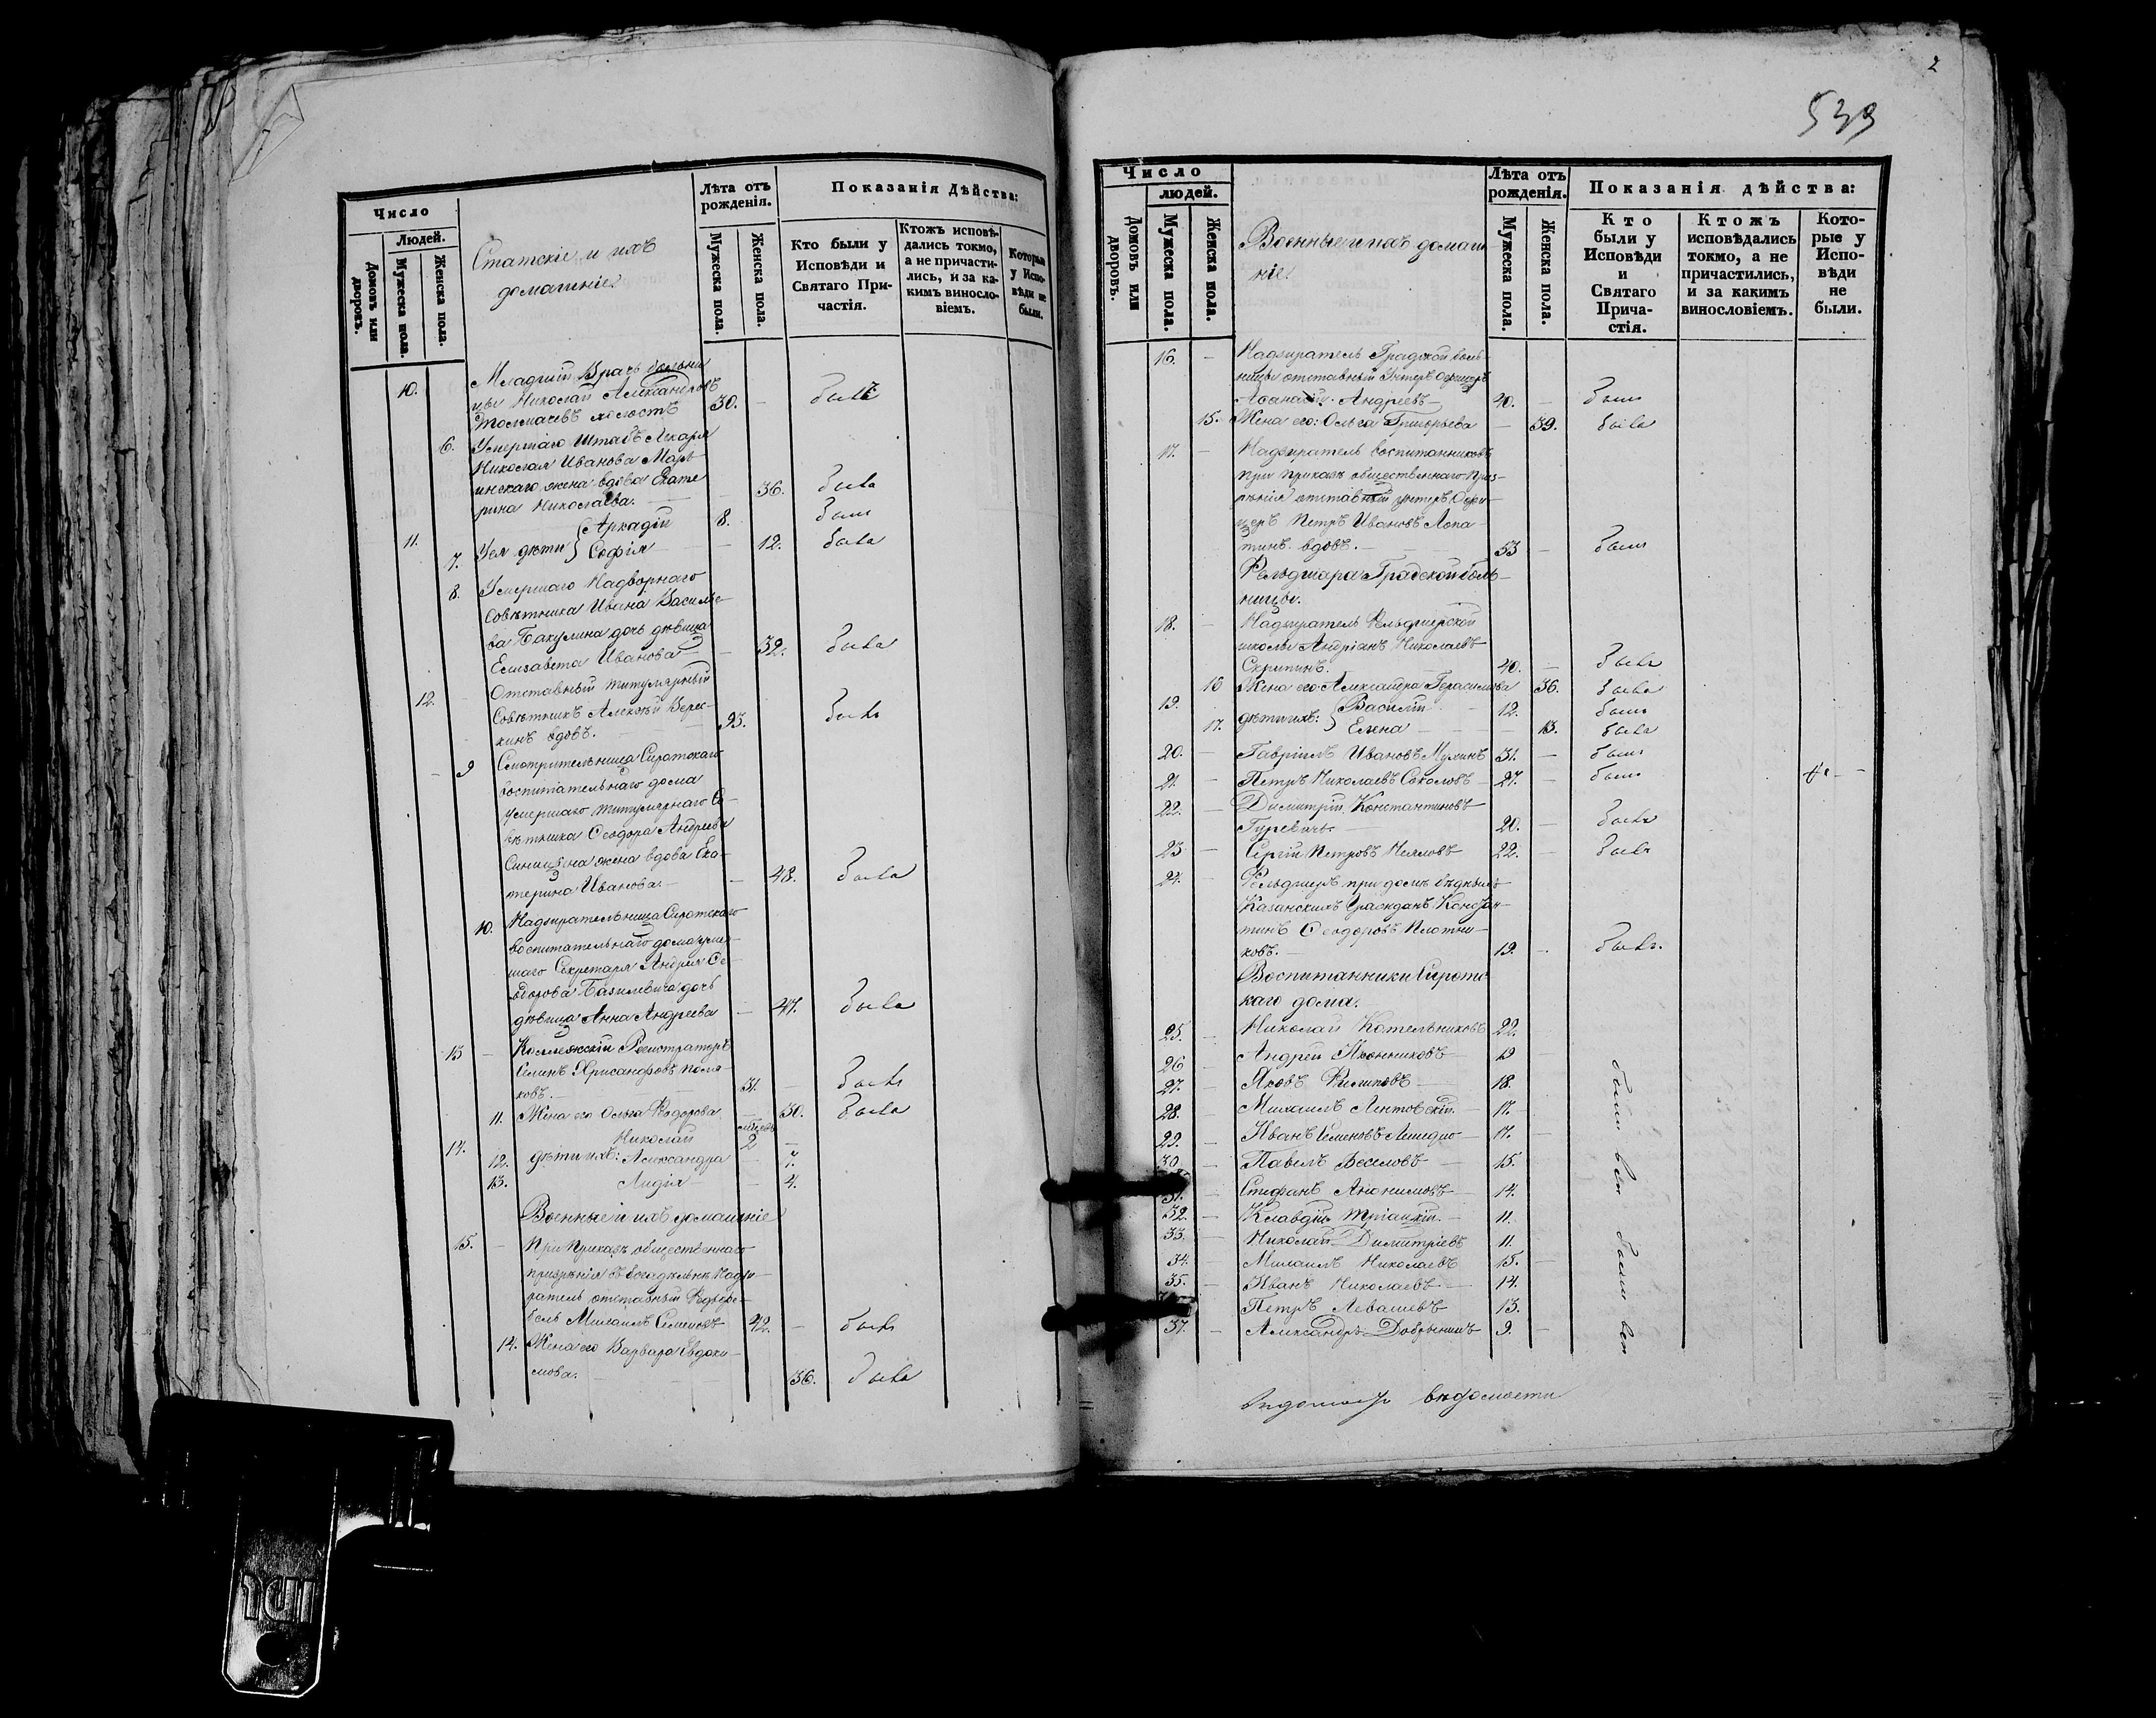 Число
Людей.
Домовъ или дворовъ.
Мужеска пола.
Женска пола.
Статскіе и ихъ
домашніе.
Лѣта отъ рожденія.
Мужеска пола.
Женска пола.
Показанія Дѣйства:
Кто были у Исповѣди и Святаго Причастія.
Ктожъ исповѣдались токмо, а не причастились, и за какимъ винословіемъ.
Которые у Исповѣди не были.
10. Младшій Врачъ больни
цы Николай Александровъ
Толмачевъ холостъ 30. — былъ
6. Умершаго Штабъ Лекаря
Николая Иванова Марь
инскаго жена вдова Екате
рина Николаева. — 36. была
11. Аркадій 8. былъ
7. Уея дѣти } Софія — 12. была
8. Умершаго Надворнаго
Совѣтника Ивана Василье-
ва Бакулина дочь дѣвица
Елизавета Иванова — 32. была
12. Отставный титулярный
Совѣтникъ Алексѣй Верес-
кинъ вдовъ. — 93. былъ
9 Смотрительница Сиротскаго
воспитательнаго дома
умершаго титулярнаго Со-
вѣтника Ѳеодора Андреева
Синицына жена вдова Ека-
терина Иванова. — 48. была
10. Надзирательница Сиротскаго
воспитательнаго дома умер-
шаго Секретаря Андрея Ѳе-
одорова Базилевича дочь
дѣвица Анна Андреева — 47. была
13 — Коллежскій Регистраторъ
Хрисанфовъ Поля-
ковъ. — 31. — былъ
11. Жена его Ольга Ѳедорова — 30. была
мѣсяц
14. Николай 2 —
12. дѣти ихъ: Александра — 7.
13. Лидія — 4.
Военные и ихъ домашніе
15. — При Приказѣ общественнаго
призрѣнія въ богадѣльнѣ Надзи-
ратель отставный Фельдфе-
бель Михаилъ Семеновъ 42. — былъ
14. Жена его Варвара Евдоки-
мова. — 36. была
2
539
Число
людей.
Домовъ или дворовъ.
Мужеска пола.
Женска пола.
Военные и ихъ домаш
ніе.
Лѣта отъ рожденія.
Мужеска пола.
Женска пола.
Показанія дѣйства:
Кто были у Исповѣди и Святаго Причастія.
Ктожъ исповѣдались токмо, а не причастились, и за какимъ винословіемъ.
Которые у Исповѣди не были.
16. — Надзиратель Градской боль-
ницы отставный Унтеръ Офицеръ
Аѳанасій Андреевъ — 40. — былъ
15. Жена его: Ольга Григорьева — 39. была
17. — Надзиратель воспитанниковъ
при приказѣ общественнаго приз-
рѣнія отставный унтеръ Офи-
церъ Петръ Ивановъ Лопа-
тинъ вдовъ. — 53 — былъ
Фельдшера Градской боль-
ницы.
18. — Надзиратель Фельдшерской
школы Андріанъ Николаевъ
Скрипинъ. 40. — былъ
16 Жена его Александра Герасимова 36. была
19. дѣти ихъ: } Василій — 12. былъ
17. Елена — 13. была
20. — Гавріилъ Ивановъ Мухинъ 31. — былъ
21. — Петръ Николаевъ Соколовъ — 27. — былъ
22. — Димитрій Константиновъ
Гуревичъ. — 20. — былъ
23 — Сергій Петровъ Неяловъ 22. — былъ
24. — Фельдшеръ при домѣ бѣдныхъ
Казанскихъ гражданъ Констан-
тинъ Ѳеодоровъ Плотни-
ковъ. — 19. — былъ.
Воспитанники Сиротс
каго дома.
25. — Николай Котельниковъ 22.
26 — Андрей Иконниковъ — 19
27. — Яковъ Филиповъ — 18.
28. — Михаилъ Лентовскій. — 17.
29. — Иванъ Семеновъ — 17. —
30. — Павелъ Веселовъ — 15.
31. — Стефанъ Анонимовъ — 14.
32. — Клавдій — 11.
33. — Николай Димитріевъ 11.
34. — Михаилъ Николаевъ 15. —
35. — Иванъ Николаевъ — 14.
Петръ Левашевъ 13.
37. — Александръ Добрынинъ 9. —
были вси
были вси
вѣдомости